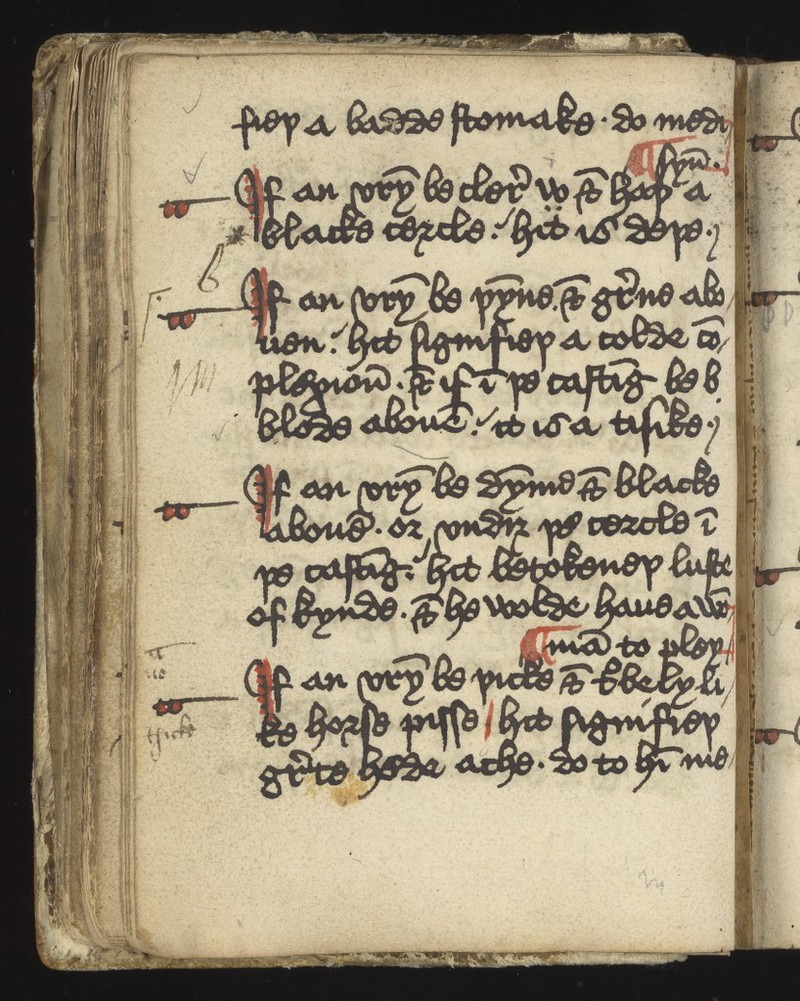 fieþ a badde stomake · do medi
syn̄ ·
If an vrȳ be cler̉ w̄ & haþ a
blacke cercle : hit is deþe ·
If an vrȳ be þȳne & gr̉ne abo
uen : hit signifieþ a colde cō
plexioun̄ · & if ī þe castīg be b
blode abouē : it is a tisike ·
If an vrȳ be dȳme & blacke
abouē · or vndir þe cercle ī
þe castīg : hit betokeneþ luste
of kynde · & he wolde haue a wō
mā to pley
If an vrȳ be þicke & t̉bely li
ke horse pisse / hit signifieþ
gr̉te hede ache · do to hī me
thicke